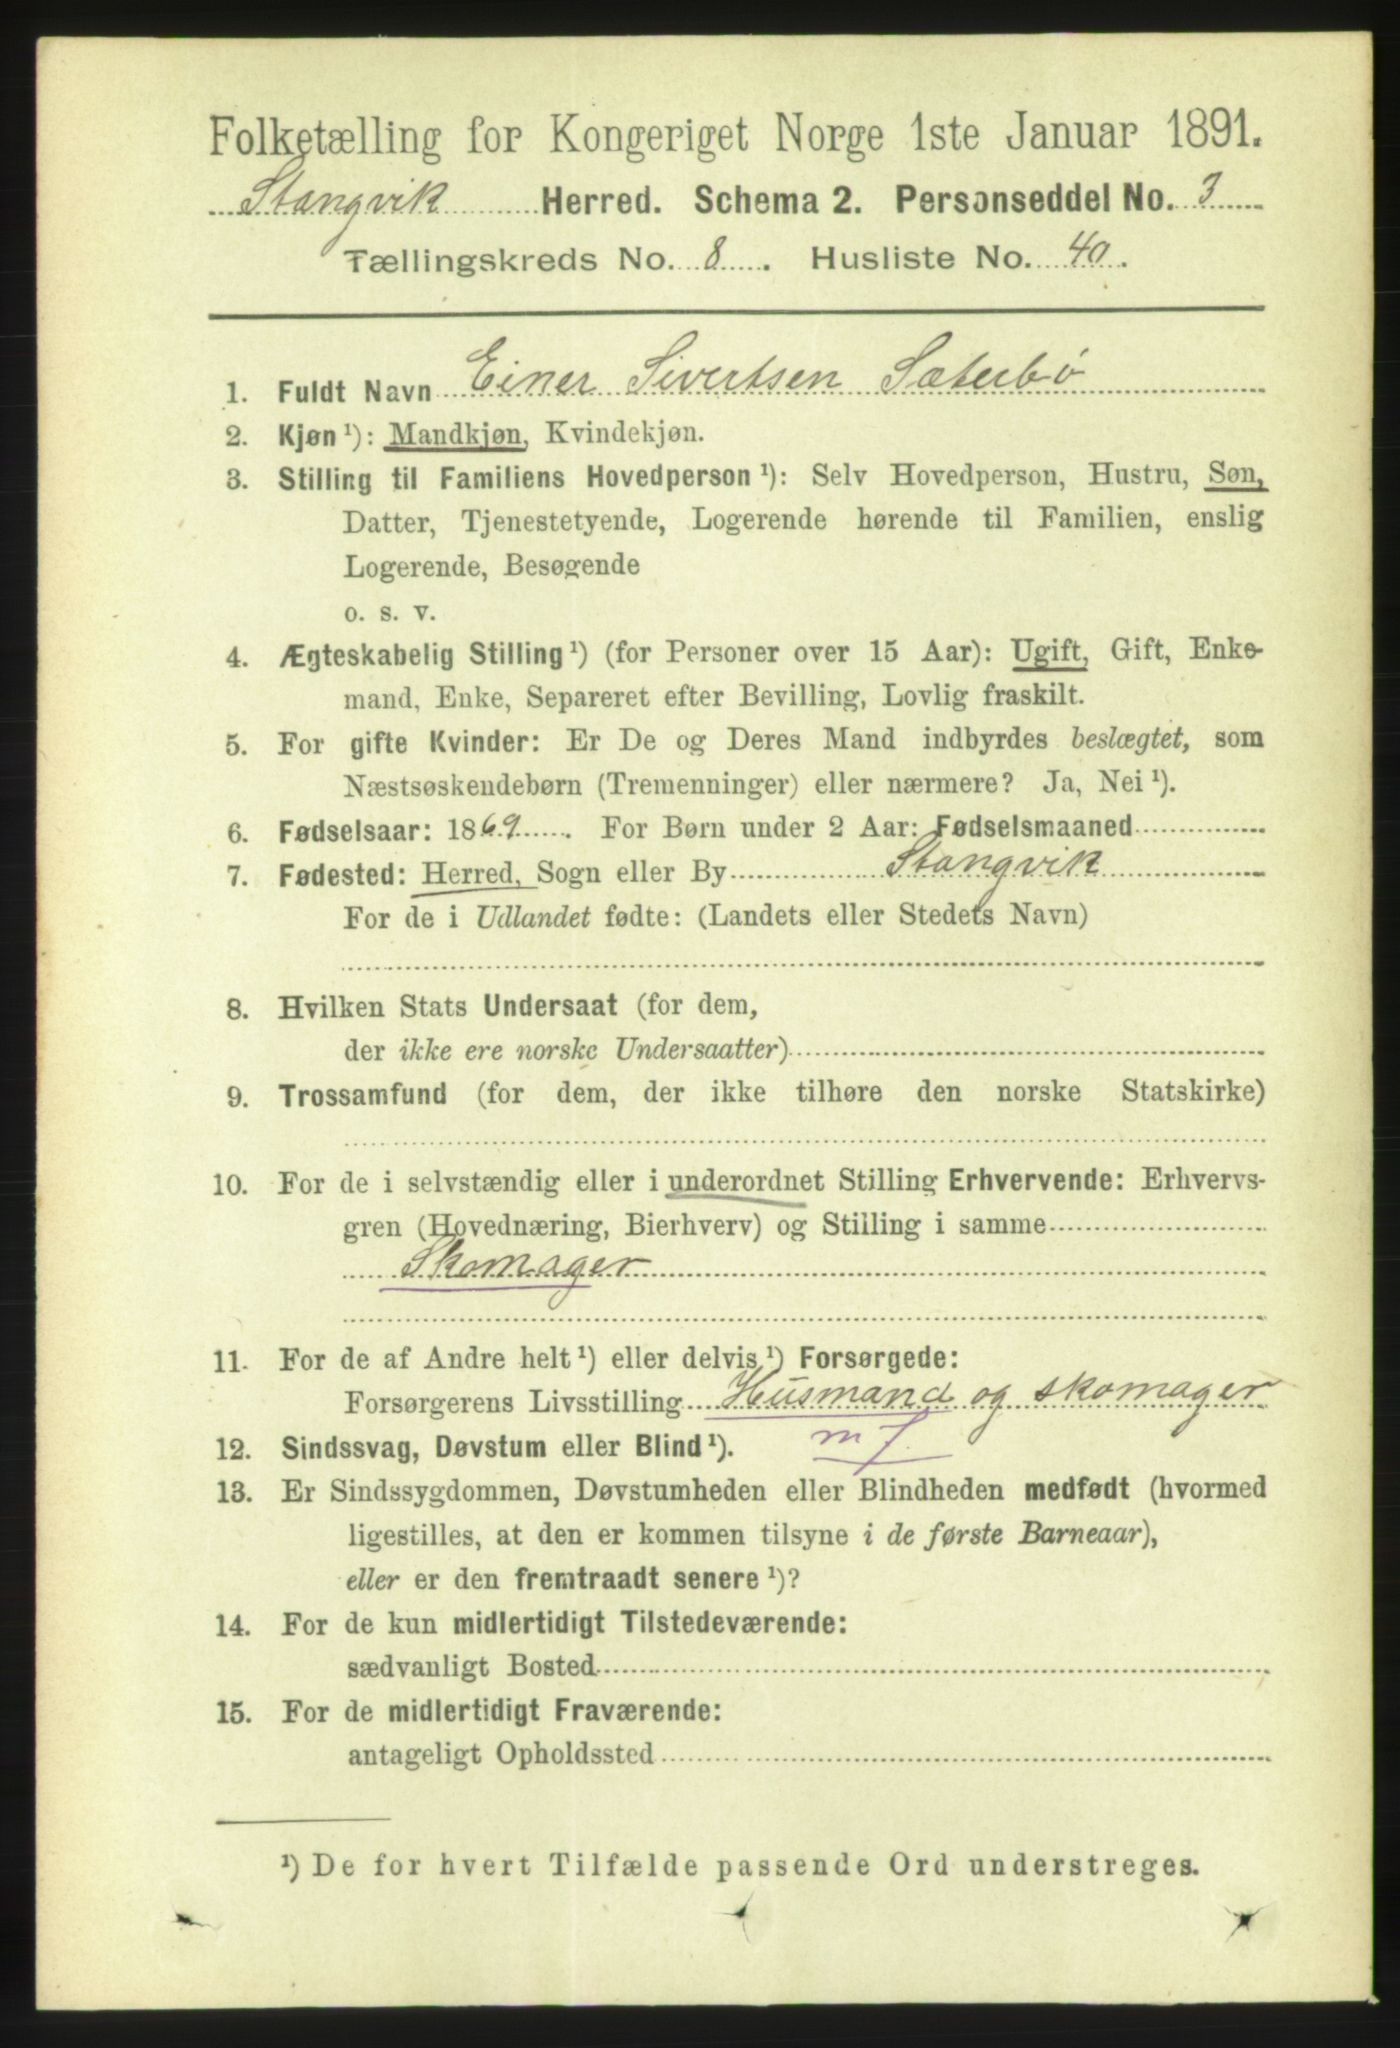 Folketælling for Kongeriget Norge 1ste Januar 1891.
Stangvik Herred. Schema 2. Personseddel No. 3
Tællingskreds No. 8. Husliste No. 40.
1. Fuldt Navn Einer Sivertsen Sæterbø
2. Kjøn ¹): Mandkjøn, Kvindekjøn.
3. Stilling til Familiens Hovedperson ¹): Selv Hovedperson, Hustru, Søn,
Datter, Tjenestetyende, Logerende hørende til Familien, enslig
Logerende, Besøgende
o. s. v.
4. Ægteskabelig Stilling ¹) (for Personer over 15 Aar): Ugift, Gift, Enke-
mand, Enke, Separeret efter Bevilling, Lovlig fraskilt.
5. For gifte Kvinder: Er De og Deres Mand indbyrdes beslægtet, som
Næstsøskendebørn (Tremenninger) eller nærmere? Ja, Nei ¹).
6. Fødselsaar: 1869. For Børn under 2 Aar: Fødselsmaaned
7. Fødested: Herred, Sogn eller By Stangvik
For de i Udlandet fødte: (Landets eller Stedets Navn)
8. Hvilken Stats Undersaat (for dem,
der ikke ere norske Undersaatter)
9. Trossamfund (for dem, der ikke tilhøre den norske Statskirke)
10. For de i selvstændig eller i underordnet Stilling Erhvervende: Erhvervs-
gren (Hovednæring, Bierhverv) og Stilling i samme
Skomager
11. For de af Andre helt ¹) eller delvis ¹) Forsørgede:
Forsørgerens Livsstilling Husmand og skomager
12. Sindssvag, Døvstum eller Blind ¹). m f.
13. Er Sindssygdommen, Døvstumheden eller Blindheden medfødt (hvormed
ligestilles, at den er kommen tilsyne i de første Barneaar),
eller er den fremtraadt senere ¹)?
14. For de kun midlertidigt Tilstedeværende:
sædvanligt Bosted
15. For de midlertidigt Fraværende:
antageligt Opholdssted
¹) De for hvert Tilfælde passende Ord understreges.